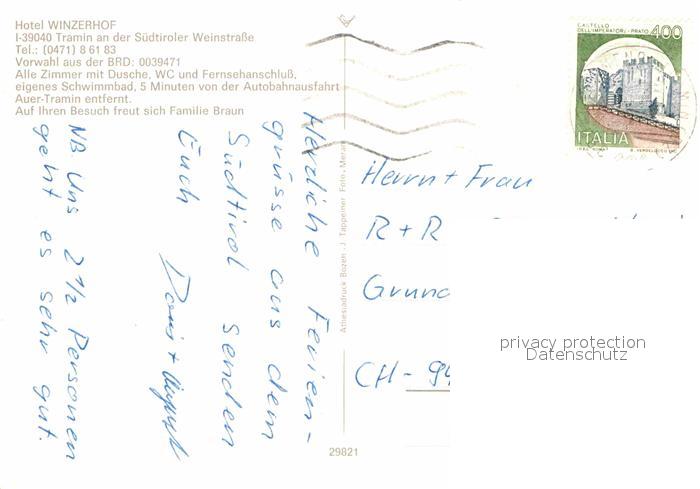 Hotel WINZERHOF
I-39040 Tramin an der Südtiroler Weinstraße
Tel.: (0471) 8 61 83
Vorwahl aus der BRD: 0039471
Alle Zimmer mit Dusche, WC und Fernsehanschluß,
eigenes Schwimmbad, 5 Minuten von der Autobahnausfahrt
Auer-Tramin entfernt.
Auf Ihren Besuch freut sich Familie Braun
Herzliche Ferien-
grüsse aus dem
Südtirol senden
Euch
Doris + August
NB Uns 2 1/2 Personen
geht es sehr gut.
Athesiadruck Bozen - J. Tappeiner Foto, Meran
29821
CASTELLO
DELL'IMPERATORE - PRATO
400
ITALIA
Herrn + Frau
R + R
CH - 94
privacy protection
Datenschutz